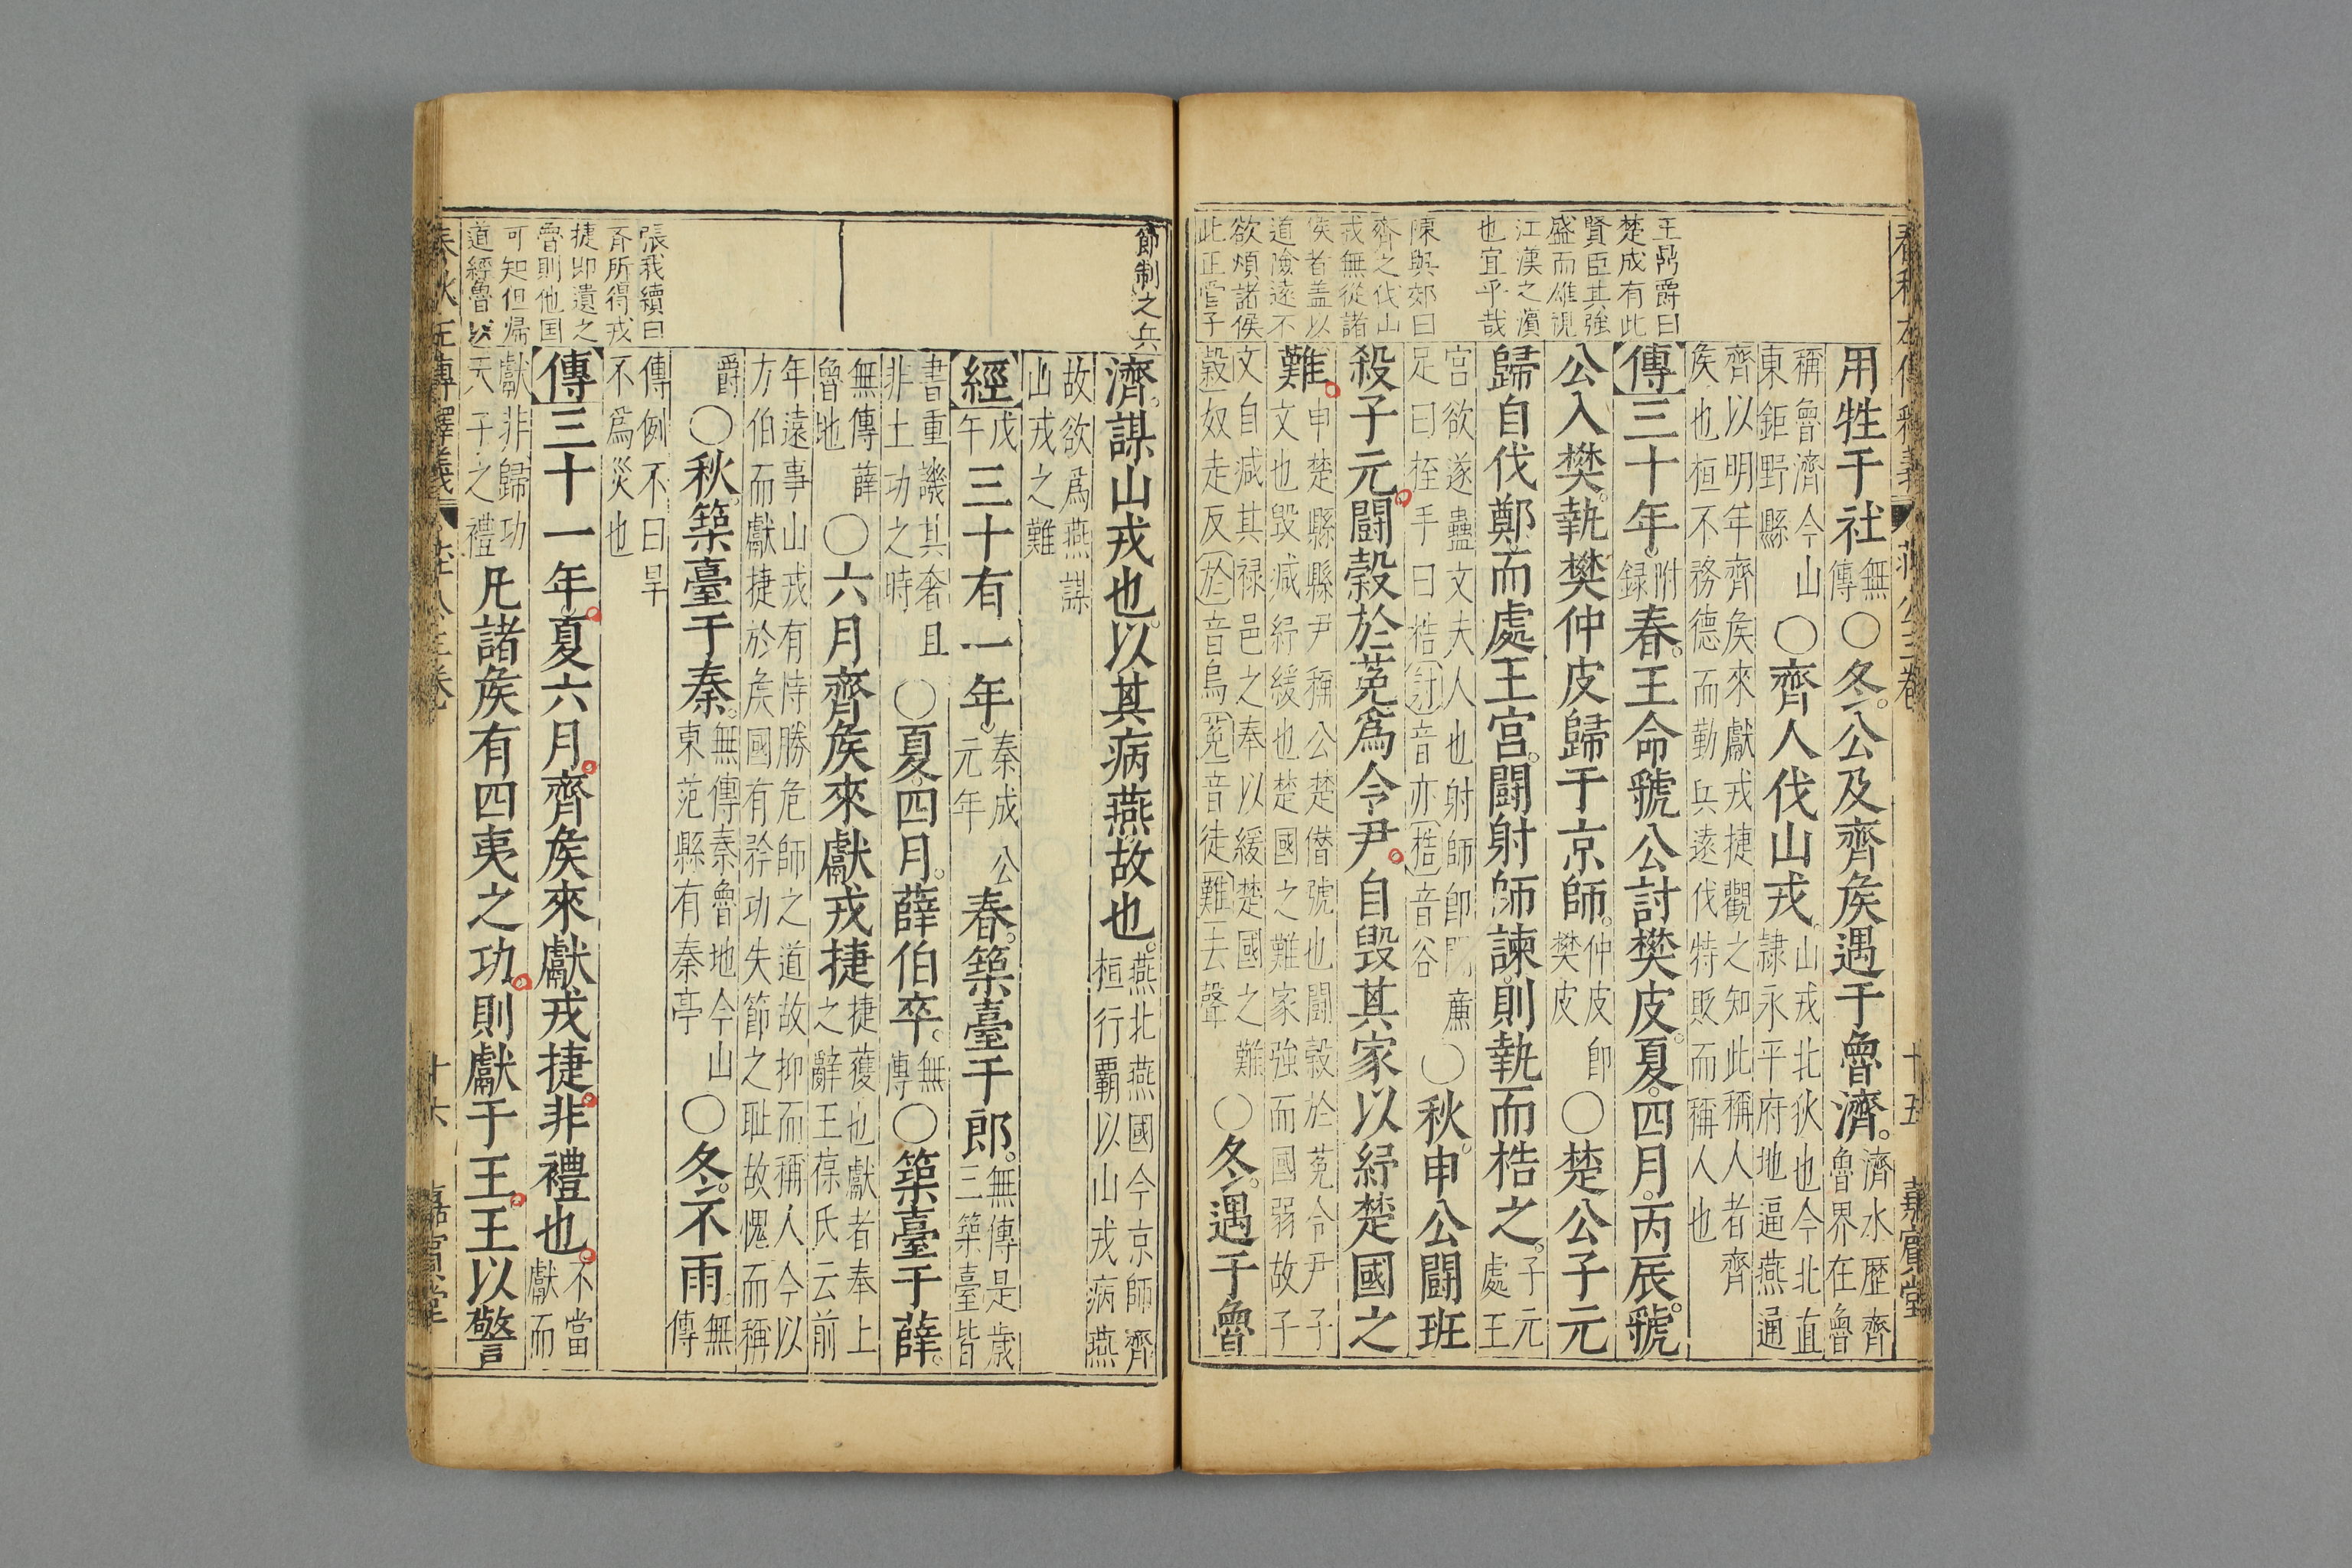 王鼎爵曰
楚成有此
賢臣其強
盛而雄視
江漢之濱
也宜乎哉
陳與郊曰
齊之伐山
戎無從諸
矦者盖以
道險遠不
欲煩諸侯
此正管子
用牲于社無傳〇冬公及齊矦遇于魯濟濟水歷齊魯界在魯
稱魯濟今山東鉅野縣〇齊人伐山戎山戎北狄也今北直隷永平府地逼燕通
齊以明年齊矦來獻戎捷觀之知此稱人者齊矦也桓不務德而勤兵遠伐特貶而稱人也
傳三十年附録春王命虢公討樊皮夏四月丙辰虢
公入樊執樊仲皮歸于京師仲皮即樊皮〇楚公子元
歸自伐鄭而處王宮鬬射師諫則執而梏之子元處王
宮欲遂蠱文夫人也射師即鬬廉足曰桎手曰梏討音亦梏音谷〇秋申公鬬班
殺子元鬬穀於莵爲令尹自毁其家以紓楚國之
難申楚縣縣尹稱公楚僣號也鬬穀於莵令尹子文也毁减紓緩也楚國之難家強而國弱故子
文自减其禄邑之奉以緩楚國之難穀奴走反於音烏莵音徒難去聲〇冬遇于魯
十五
嘉賔堂
節制之兵
張我續曰
斉所得戎
捷即遺之
魯則他国
可知但帰
道經魯以
濟謀山戎也以其病燕故也燕北燕國今京師齊桓行覇以山戎病燕
故欲爲燕謀山戎之難
經戊午三十有一年秦成公元年春築臺于郎無傳是歲三築臺皆
書重譏其奢且非土功之時〇夏四月薛伯卒無傳〇築臺于薛
無傳薛魯地〇六月齊矦來獻戎捷捷獲也獻者奉上之辭王葆氏云前
年遠事山戎有恃勝危師之道故抑而稱人今以方伯而獻捷於矦國有矜功失節之耻故愧而稱
爵〇秋築臺于秦無傳秦魯地今山東范縣有秦亭〇冬不雨無傳
傳例不曰旱不爲災也
傳三十一年夏六月齊矦來獻戎捷非禮也不當獻而
獻非歸功天子之禮凡諸矦有四夷之功則獻于王王以警
春秋左傳釋義
十六
嘉賔堂